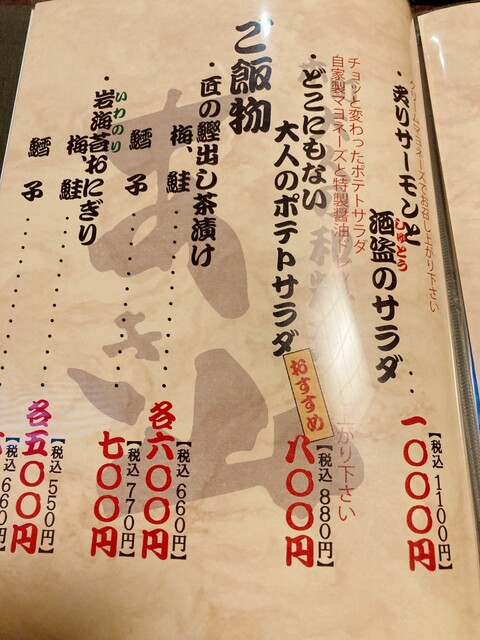 クリームマヨネーズでお召し上がり下さい
・炙りサーモンと
酒盗のサラダ
しゅとう
一〇〇〇円
【税込 1100円】
チョッと変わったポテトサラダ
自家製マヨネーズと特製醤油ド
上がり下さい
・どこにもない
大人のポテトサラダ
おすすめ
八〇〇円
【税込 880円】
ご飯物
・匠の鰹出し茶漬け
梅、鮭
各六〇〇円
【税込 660円】
鱈子
七〇〇円
【税込 770円】
いわのり
・岩海苔おにぎり
梅、鮭
各五〇〇円
【税込 550円】
鱈子
【税込 660円】
あき山